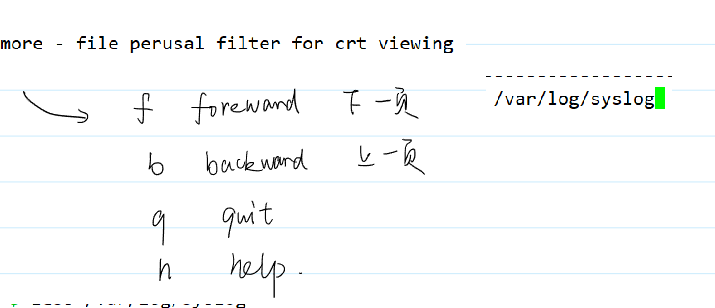 more - file perusal filter for crt viewing
/var/log/syslog
f foreward 下一页
b backward 上一页
q quit
h help.